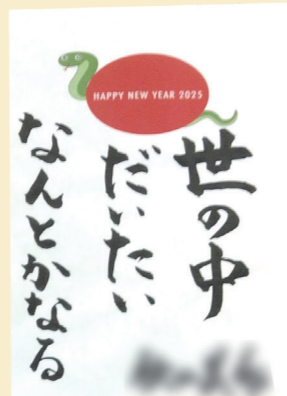 HAPPY NEW YEAR 2025
世の中
だいたい
なんとかなる